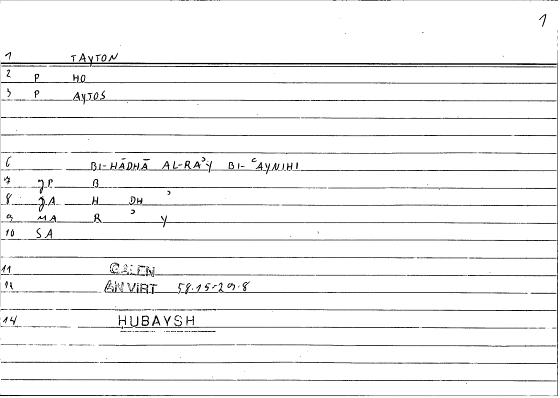 1
1 TAYTON
2 P HO
3 P AYTOS
6 BI-HĀDHĀ AL-RAʾY BI-ʿAYNIHI
7 B
8 H DHʾ
9 MA R ʾ Y
10 SA
11 GALEN
AN VIRT 58.15-29.8
14 HUBAYSH